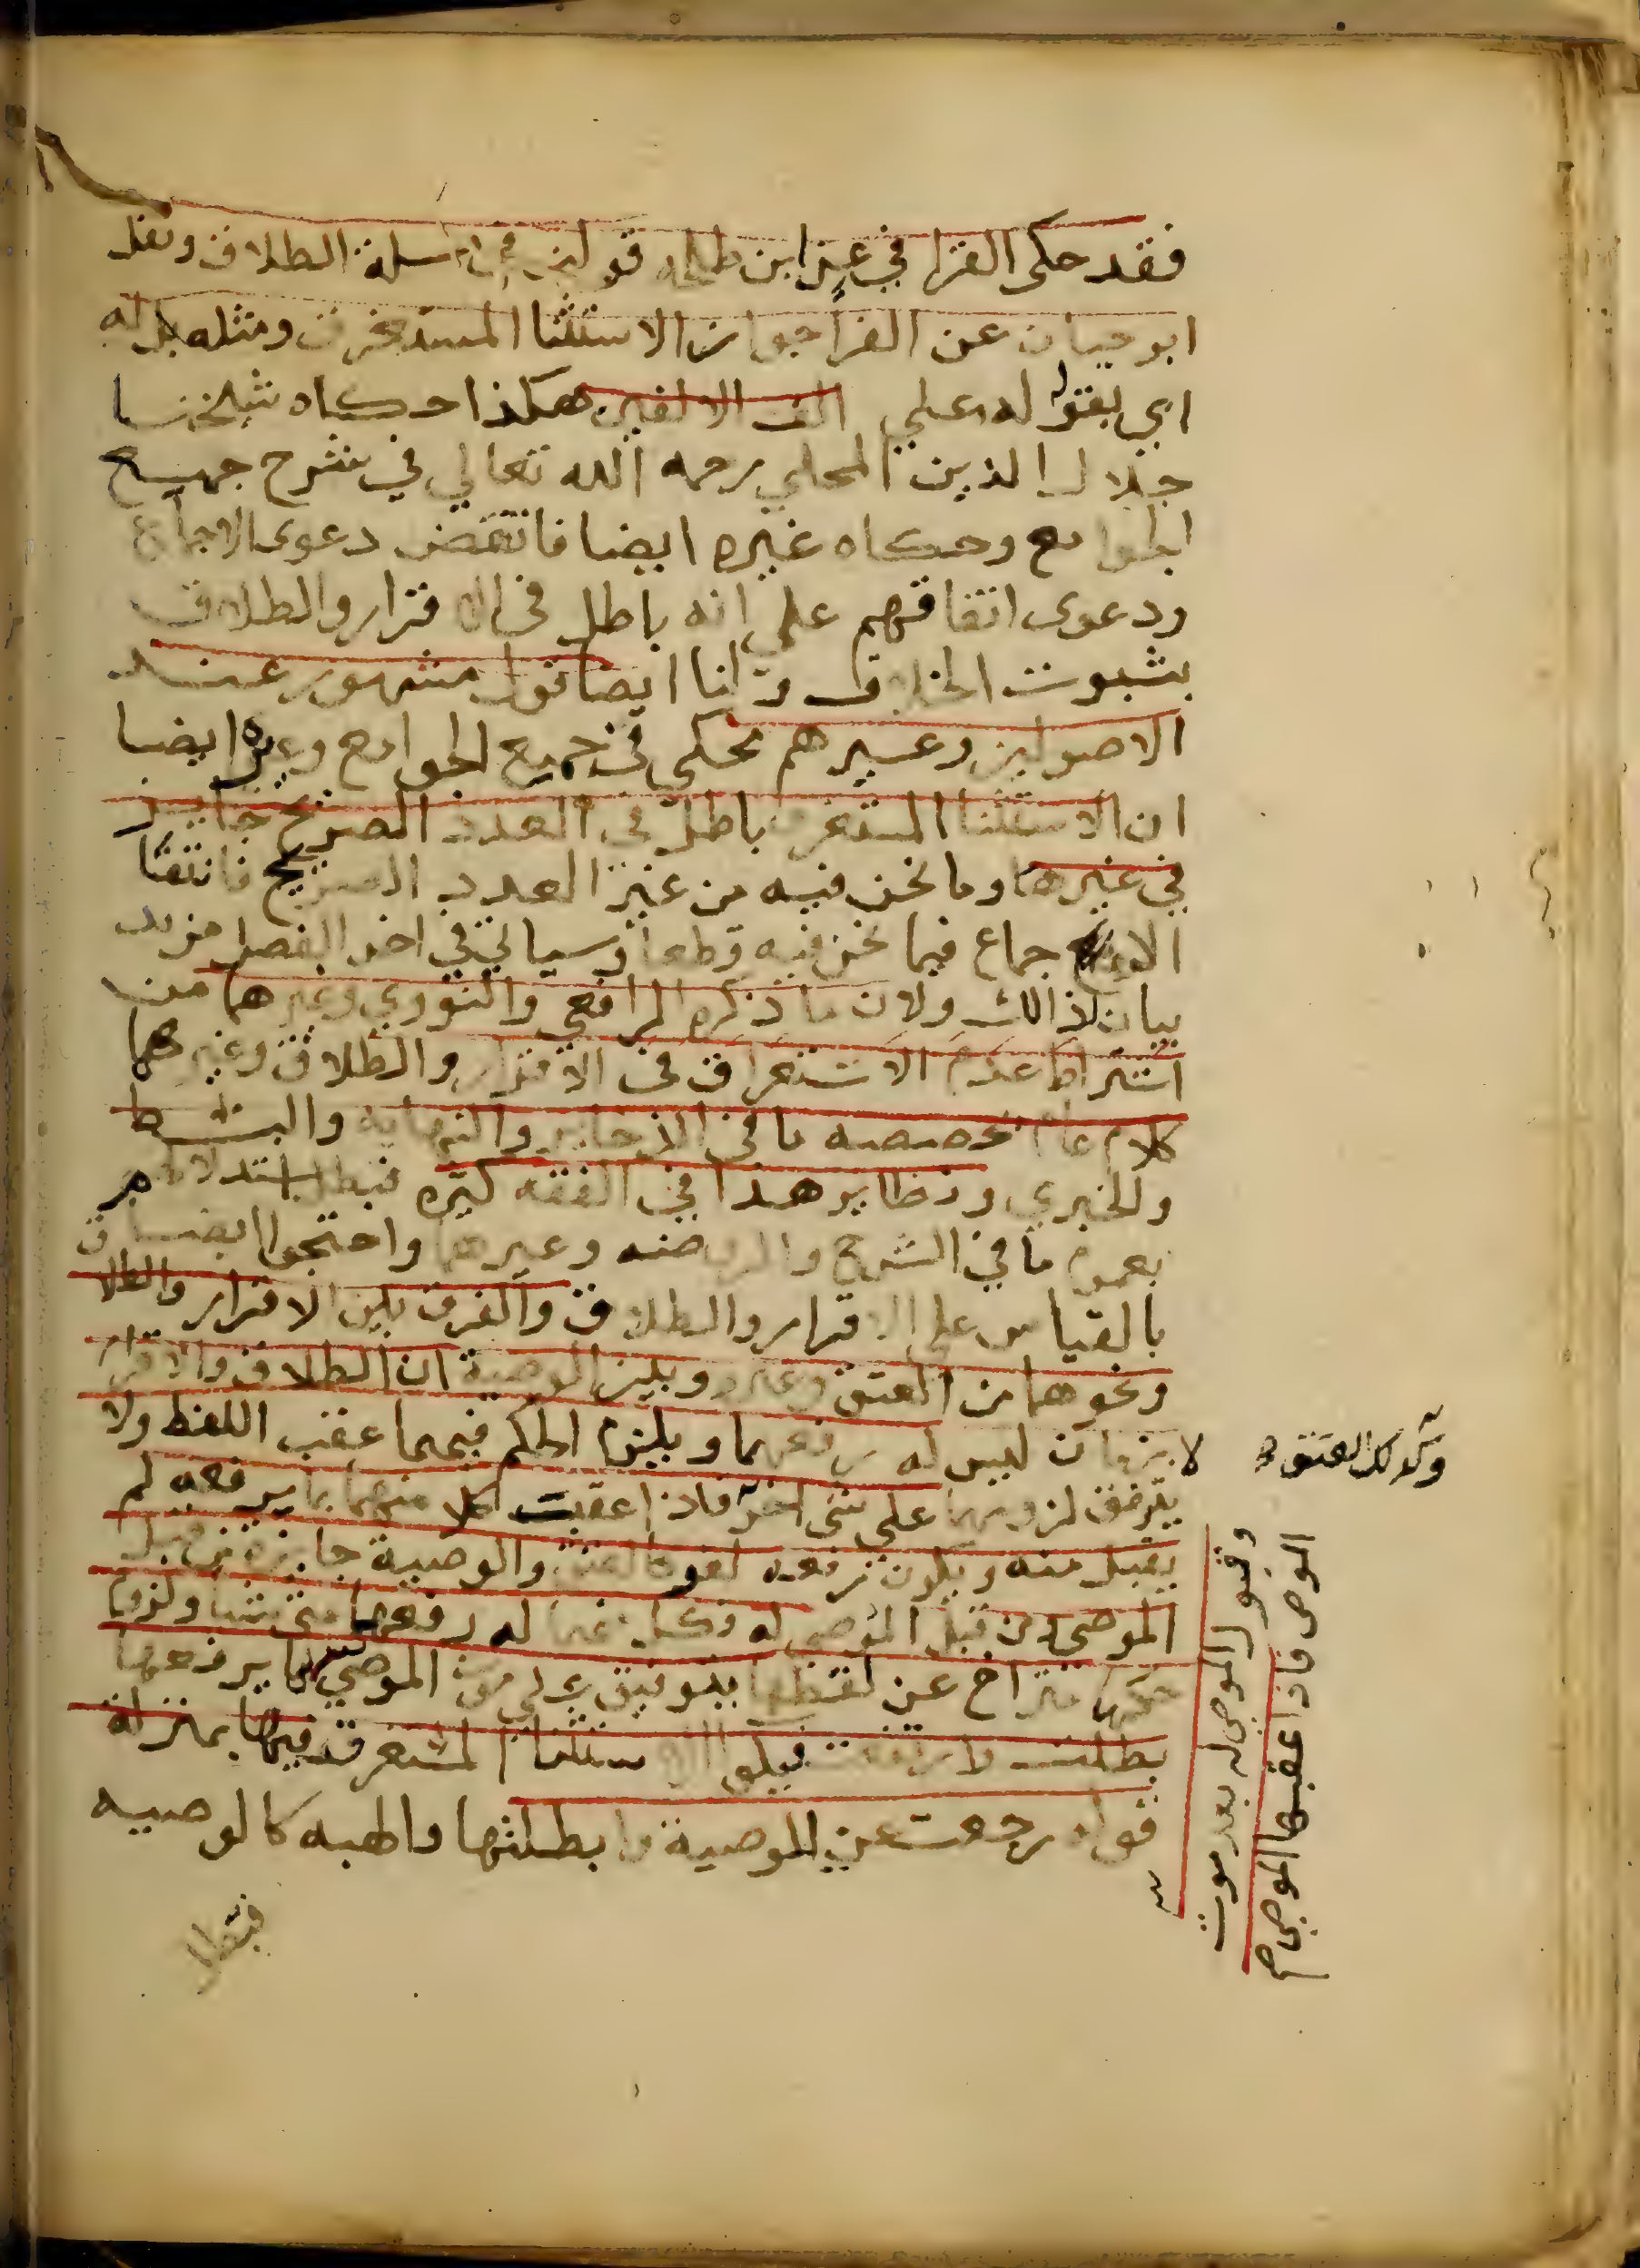 فقد حكى القرافي عن ابن طلحه قولين في مسلة الطلاق ونقل
ابو حيان عن الفرا جواز الاستثنا المستغرق ومثله بله
اي بقوله له علي الف الا لفين هكذا حكاه شيخنا
جلال الدين المحلي رحمه الله تعالي في شرح جميع
الجوامع وحكاه غيره ايضا فانتقض دعوى الاجماع
ودعوى اتفاقهم علي انه باطل في الاقرار والطلاق
بثبوت الخلاف ولنا ايضا قول مشهور عند
الاصولين وغيرهم محكي في جميع الجوامع وغيره ايضا
ان الاستثنا المستغرق باطل في العدد الصريح جايز
في غيرها وما نحن فيه من غير العدد الصريح فانتفا
الاجماع فيما نحن فيه قطعا وسياتي في اخر الفصل مزيد
بيان لذالك ولان ما ذكره الرافعي والنووي وغيرهما من
اشتراط عدم الاستغراق في الاقرار والطلاق وغيرهما
كلام عام خصصه ما في الذخاير والنهايه والبسط
وللخبري ونظاير هذا في الفقه كثيره فبطل استدلالهم
بعموم ما في الشرح والروضه وغيرهما واحتجوا ايضا
بالقياس علي الاقرار والطلاق والفرق بين الاقرار والطلاق
ونحوهما من العتق وغيره وبين الوصية ان الطلاق والاقرار
لازمان ليس له رفعهما ويلزم الحكم فيهما عقب اللفظ ولا
يتوقف لزومهما علي شي اخر فاذا عقبت كلا منهما بما يرفعه لم
يقبل منه ويكون رفعه لغو كالعتق والوصية جايزة من قبل
الموصي ومن قبل الموصي له فكل منهما له رفعها متى شا ولزوم
حكمها متراخ عن لفظها يتوقف علي موت الموصي بما يرفعها
بطلت وارتفعت فيكون الاستثنا المستغرق فيها بمنزلة
قوله رجعت عن الوصية وابطلتها والهبه كالوصيه
وكذلك العتق
وقبول الموصى له بعد موت
الموصي فاذا عقبها الموصي
فتبطل